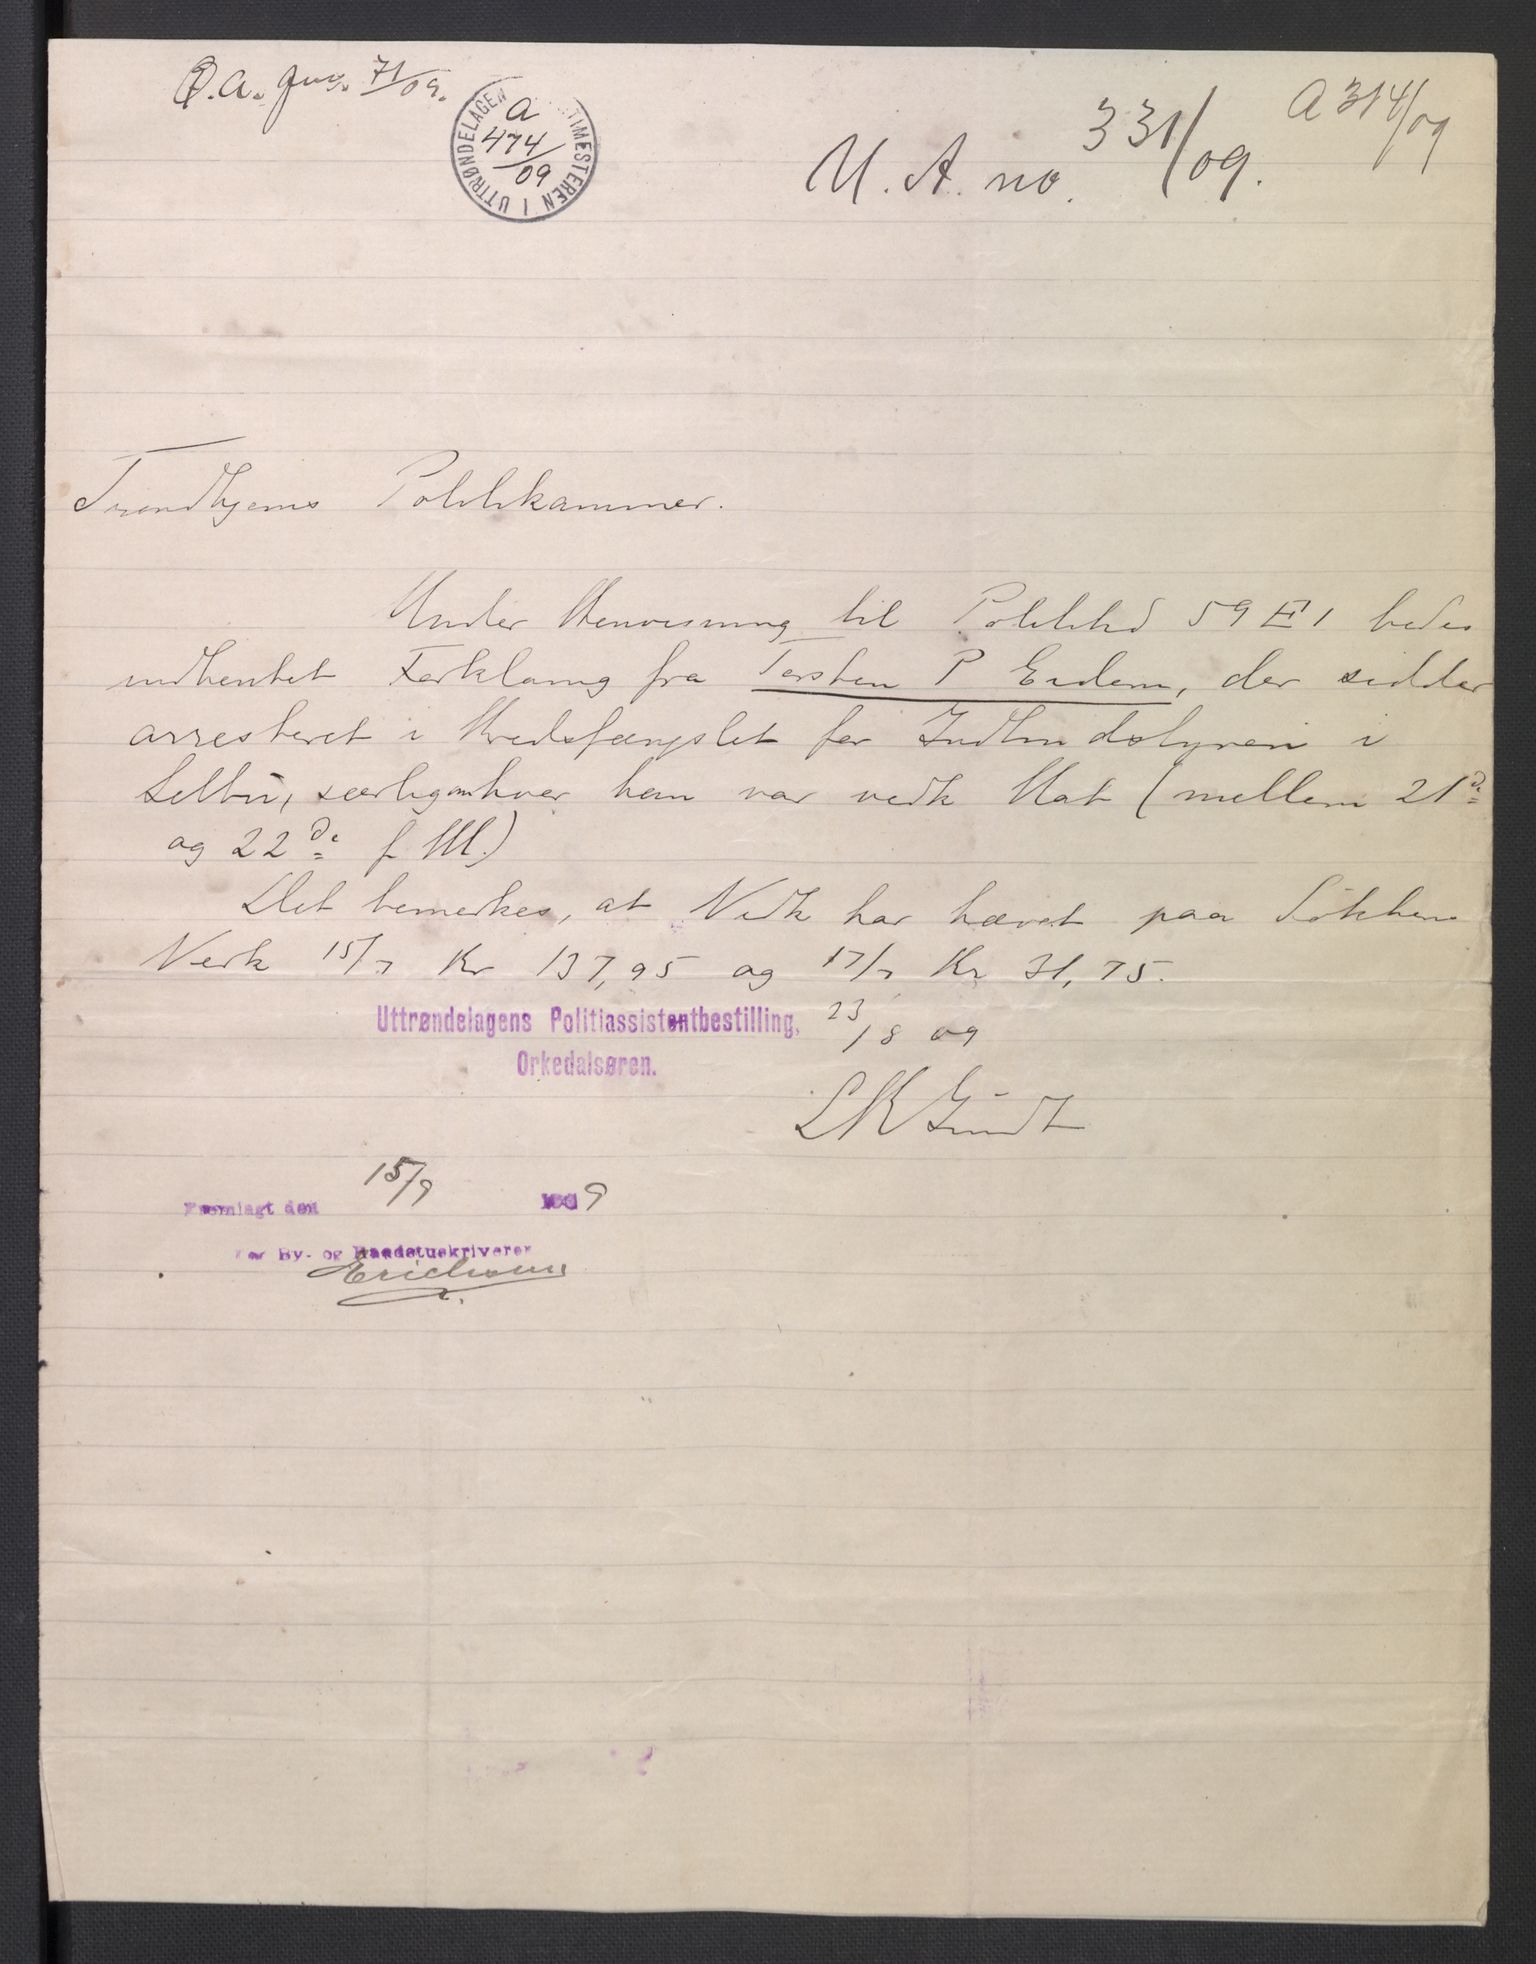 O.a. gws. 71/09.
POLITIMESTEREN I UTTRØNDELAGEN
a
474/09
U. A. no. 331/09.
A 314/09
Trondhjems Politikammer.
Under Henvisning til Polititid 59 E 1 bedes
indhentet Forklaring fra Torsten P Eidem, der sidder
arresteret i Kredsfængslet for Indbrudstyveri i
Selbu, særlig om hvor han var vedk Nat (mellem 21de
og 22de f M.)
Det bemerkes, at Vedk har hævet paa Løkkens
Verk 15/7 Kr 137,95 og 17/7 Kr 31,75.
Uttrøndelagens Politiassistentbestilling, 23/8 09
Orkedalsøren.
Fremlagt den 15/9 1909
For By- og Raadstuskriveren
Erichsen